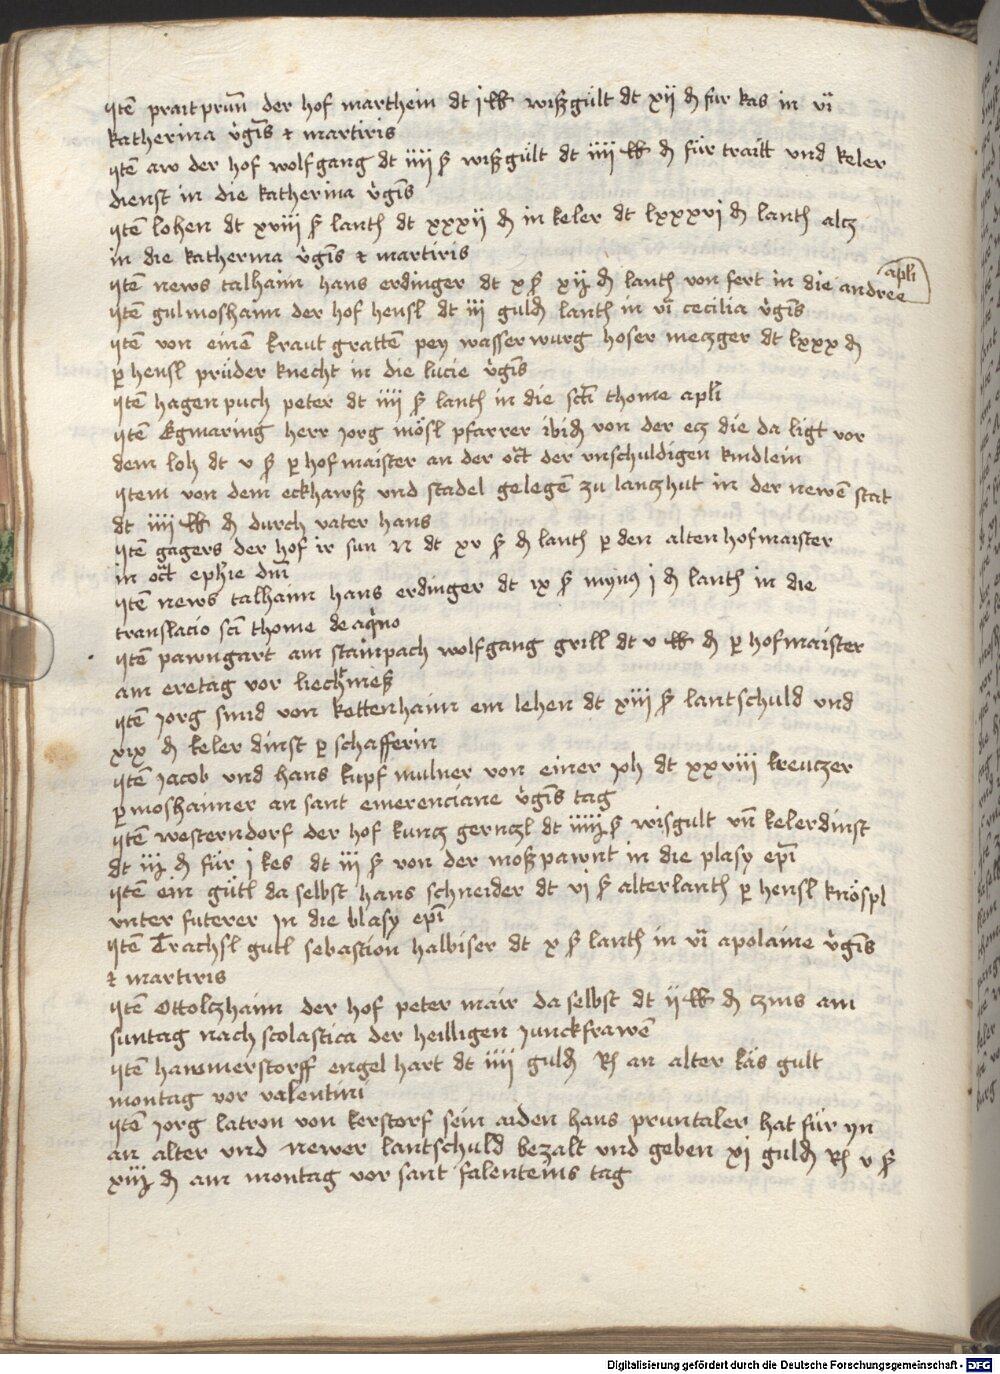 Itē praitprun̄ der hof marthein dt j ℔ wißgült dt xij ₰ fur kas in vi͞
katherina v̉gīs ⁊ martiris
Itē aw der hof wolfgang dt iiij ß wißgült dt iiij ℔ ₰ für traitt vnd keler
dienst in die katherina v̉gīs
Itē lohen dt xviii ß lanth dt xxxij ₰ in keler dt lxxxvj ₰ lanth altz
in die katherina v̉gīs ⁊ martiris
Itē news talhaim hans erdinger dt x ß xij ₰ lanth von fert in die andree apl̄i
Itē gulmoshaim der hof hensl dt iij guld̄ lanth in vi͞ cecilia v̉gīs
Itē von einē kraut grattē pey wasserwurg hoser metzger dt lxxx ₰
ꝑ hensl prüder knecht in die lucie v̉gīs
Itē hagenpuch peter dt iiij ß lanth in die sct̄i thome apl̄i
Itē Egmaring herr jorg mösl pfarrer ibid̄ von der etz die da ligt vor
dem loh dt v ß ꝑ hofmaister an der oct̄ der vnschuldigen kindlein
Item von dem eckhawß vnd stadel gelegē zu lantzhut in der newē stat
dt iiij ℔ ₰ durch vater hans
Itē gagers der hof ir sun N dt xv ß ₰ lanth ꝑ den alten hofmaister
in oct̄ eph̄ie dnī
Itē news talhaim hans erdinger dt ix ß mynꝰ j ₰ lanth in die
translacio sc̄i thome de aq̉no
Itē pawngart am stainpach wolfgang grill dt v ℔ ₰ ꝑ hofmaister
am eretag vor liechtmeß
Itē jorg smid von kettenhaim ein lehen dt xiii ß lantschuld vnd
xix ₰ keler dinst ꝑ schafferin
Itē jacob vnd hans kupfmulner von einer dt xxviii kreutzer
ꝑ moshaimer an sant emerenciane v̉gīs tag
Itē westerndorf der hof kuntz gerntzl dt ß wisgult vn̄ kelerdinst
dt iij ₰ für j kes dt iij ß von der moßpawnt in die plasy ep̄i
Itē ein gütl da selbst hans schneider dt vj ß alterlanth ꝑ hensl knöspl
vnter futerer in die blasy ep̄i
Itē Trachsl gutl sebastion halbiser dt x ß lanth in vi͞ apolaine v̉gīs
⁊ martiris
Itē Ottoltzhaim der hof peter mair da selbst dt ij ℔ ₰ czins am
suntag nach scolastica der heilligen junckfrawē
Itē hawmerstorff engelhart dt iiij guld̄ Rh an alter käs gult
montag vor valentini
Itē jorg latron von kerstorf sein aiden hans pruntaler hat für yn
an alter vnd newer lantschuld bezalt vnd geben xj guld̄ Rh v ß
xiij ₰ am montag vor sant falenteins tag
Digitalisierung gefördert durch die Deutsche Forschungsgemeinschaft - DFG